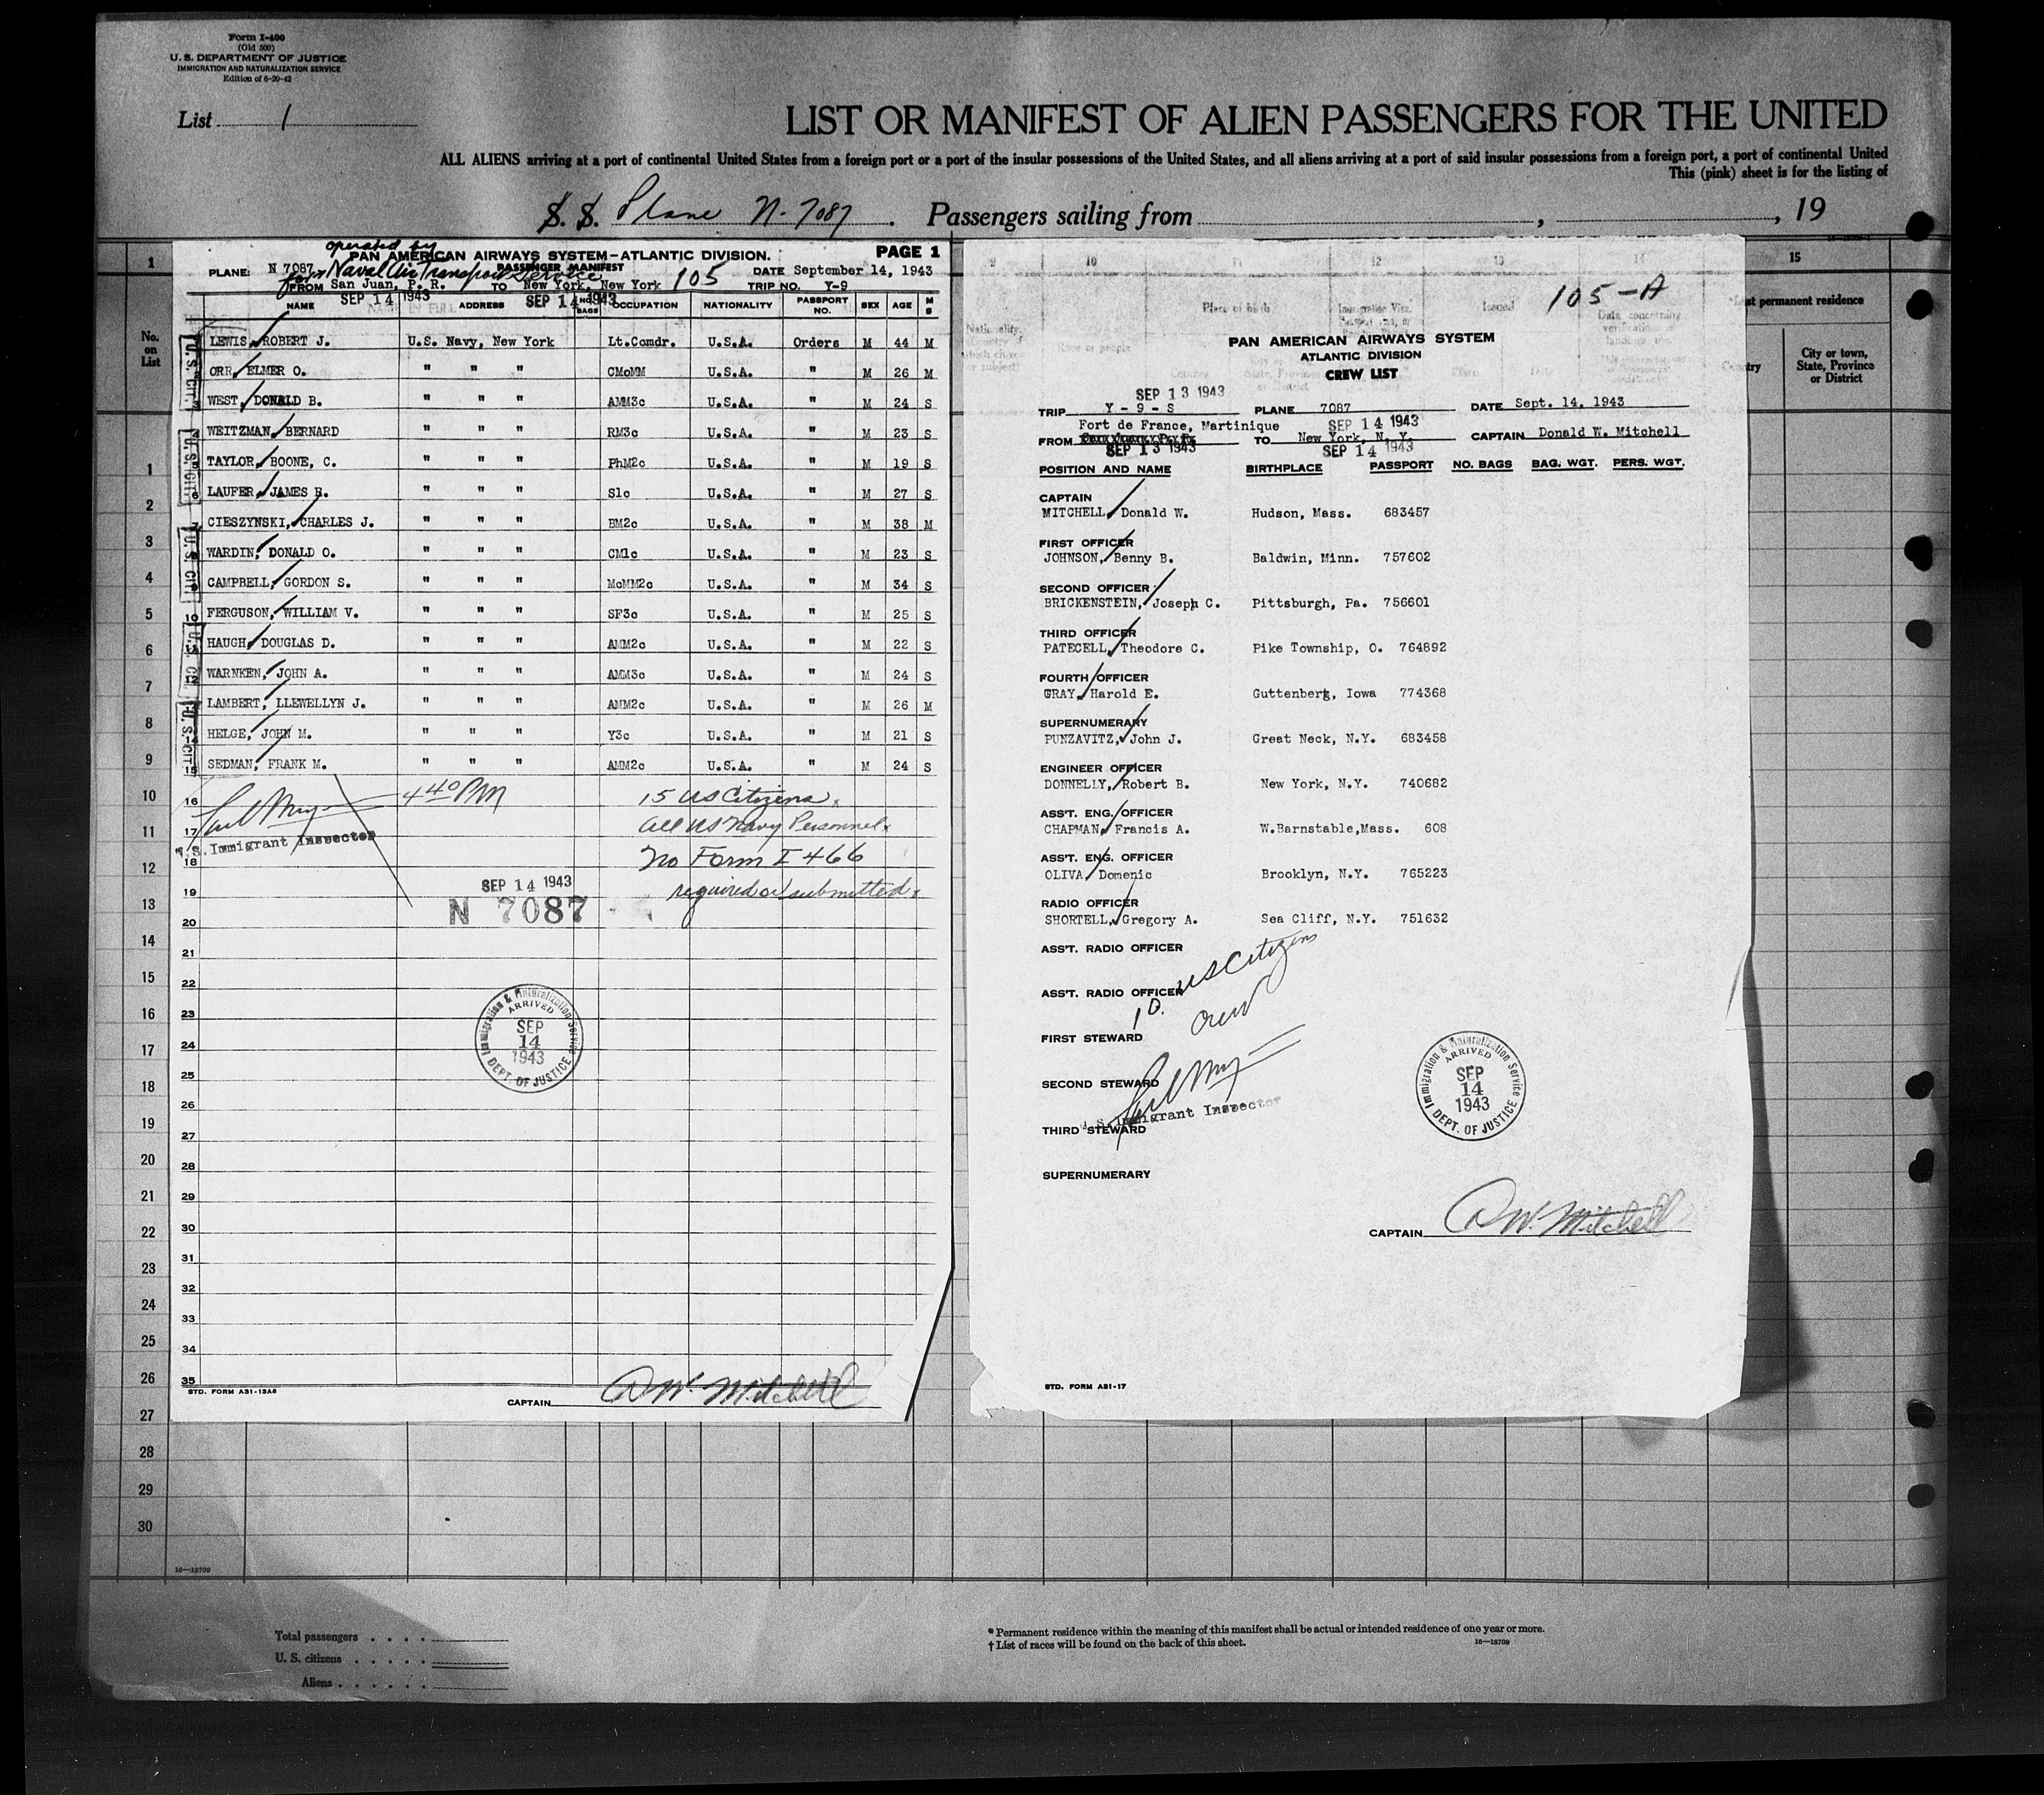 Form I-400
(Old 500)
U. S. DEPARTMENT OF JUSTICE
IMMIGRATION AND NATURALIZATION SERVICE
Edition of 6-20-42
List 1
LIST OR MANIFEST OF ALIEN PASSENGERS FOR THE UNITED
ALL ALIENS arriving at a port of continental United States from a foreign port or a port of the insular possessions of the United States, and all aliens arriving at a port of said insular possessions from a foreign port, a port of continental United
This (pink) sheet is for the listing of
S. S. Plane N-7087. Passengers sailing from , , 19
operated by
PAN AMERICAN AIRWAYS SYSTEM–ATLANTIC DIVISION. PAGE 1
PLANE: N 7087 for Naval Air Transport Service PASSENGER MANIFEST 105 DATE September 14, 1943
FROM San Juan, P. R. TO New York, New York TRIP NO. Y-9
SEP 14 1943 SEP 14 1943
NAME ADDRESS NO. BAGS OCCUPATION NATIONALITY PASSPORT NO. SEX AGE M S
LEWIS, ROBERT J. U.S. Navy, New York Lt.Comdr. U.S.A. Orders M 44 M
ORR, ELMER O. " " " CMoMM U.S.A. " M 26 M
3 WEST, DONALD B. " " " AMM3c U.S.A. " M 24 S
WEITZMAN, BERNARD " " " RM3c U.S.A. " M 23 S
5 TAYLOR, BOONE, C. " " " PhM2c U.S.A. " M 19 S
6 LAUFER, JAMES R. " " " S1c U.S.A. " M 27 S
7 CIESZYNSKI, CHARLES J. " " " BM2c U.S.A. " M 38 M
8 WARDIN, DONALD O. " " " CM1c U.S.A. " M 23 S
9 CAMPBELL, GORDON S. " " " MoMM2c U.S.A. " M 34 S
10 FERGUSON, WILLIAM V. " " " SF3c U.S.A. " M 25 S
HAUGH, DOUGLAS D. " " " AMM2c U.S.A. " M 22 S
12 WARNKEN, JOHN A. " " " AMM3c U.S.A. " M 24 S
LAMBERT, LLEWELLYN J. " " " AMM2c U.S.A. " M 26 M
14 HELGE, JOHN M. " " " Y3c U.S.A. " M 21 S
15 SEDMAN, FRANK M. " " " AMM2c U.S.A. " M 24 S
U.S. CIT.
U.S. CIT.
U.S. CIT.
U.S. CIT.
U.S. CIT.
16 4 40 PM 15 US Citizens
17 All US Navy Personnel
U.S. Immigrant Inspector
18 No Form I 466
19 SEP 14 1943 required or submitted
N 7087
20
21
22
23
24
25
26
27
28
29
30
31
32
33
34
35
Immigration & Naturalization Service
ARRIVED
SEP
14
1943
DEPT. OF JUSTICE
STD. FORM A31-13A6
CAPTAIN D W. Mitchell
105-A
PAN AMERICAN AIRWAYS SYSTEM
ATLANTIC DIVISION
CREW LIST
SEP 13 1943
TRIP Y - 9 - S PLANE 7087 DATE Sept. 14, 1943
Fort de France, Martinique SEP 14 1943
FROM TO New York, N. Y. CAPTAIN Donald W. Mitchell
SEP 13 1943 SEP 14 1943
POSITION AND NAME BIRTHPLACE PASSPORT NO. BAGS BAG. WGT. PERS. WGT.
CAPTAIN
MITCHELL, Donald W. Hudson, Mass. 683457
FIRST OFFICER
JOHNSON, Benny B. Baldwin, Minn. 757602
SECOND OFFICER
BRICKENSTEIN, Joseph C. Pittsburgh, Pa. 756601
THIRD OFFICER
PATECELL, Theodore C. Pike Township, O. 764892
FOURTH OFFICER
GRAY, Harold E. Guttenberg, Iowa 774368
SUPERNUMERARY
PUNZAVITZ, John J. Great Neck, N.Y. 683458
ENGINEER OFFICER
DONNELLY, Robert B. New York, N.Y. 740682
ASS'T. ENG. OFFICER
CHAPMAN, Francis A. W.Barnstable,Mass. 608
ASS'T. ENG. OFFICER
OLIVA, Domenic Brooklyn, N.Y. 765223
RADIO OFFICER
SHORTELL, Gregory A. Sea Cliff, N.Y. 751632
ASS'T. RADIO OFFICER
ASS'T. RADIO OFFICER
10 US Citizens
Crew
FIRST STEWARD
SECOND STEWARD
U.S. Immigrant Inspector
THIRD STEWARD
SUPERNUMERARY
Immigration & Naturalization Service
ARRIVED
SEP
14
1943
DEPT. OF JUSTICE
CAPTAIN D W. Mitchell
STD. FORM A31-17
1
No. on List
1
2
3
4
5
6
7
8
9
10
11
12
13
14
15
16
17
18
19
20
21
22
23
24
25
26
27
28
29
30
9 10 11 12 13 14 15
Place of birth
Issued
Data concerning
permanent residence
City or town,
State, Province
or District
16—18709
Total passengers
U. S. citizens
Aliens
* Permanent residence within the meaning of this manifest shall be actual or intended residence of one year or more.
† List of races will be found on the back of this sheet.
16—18709